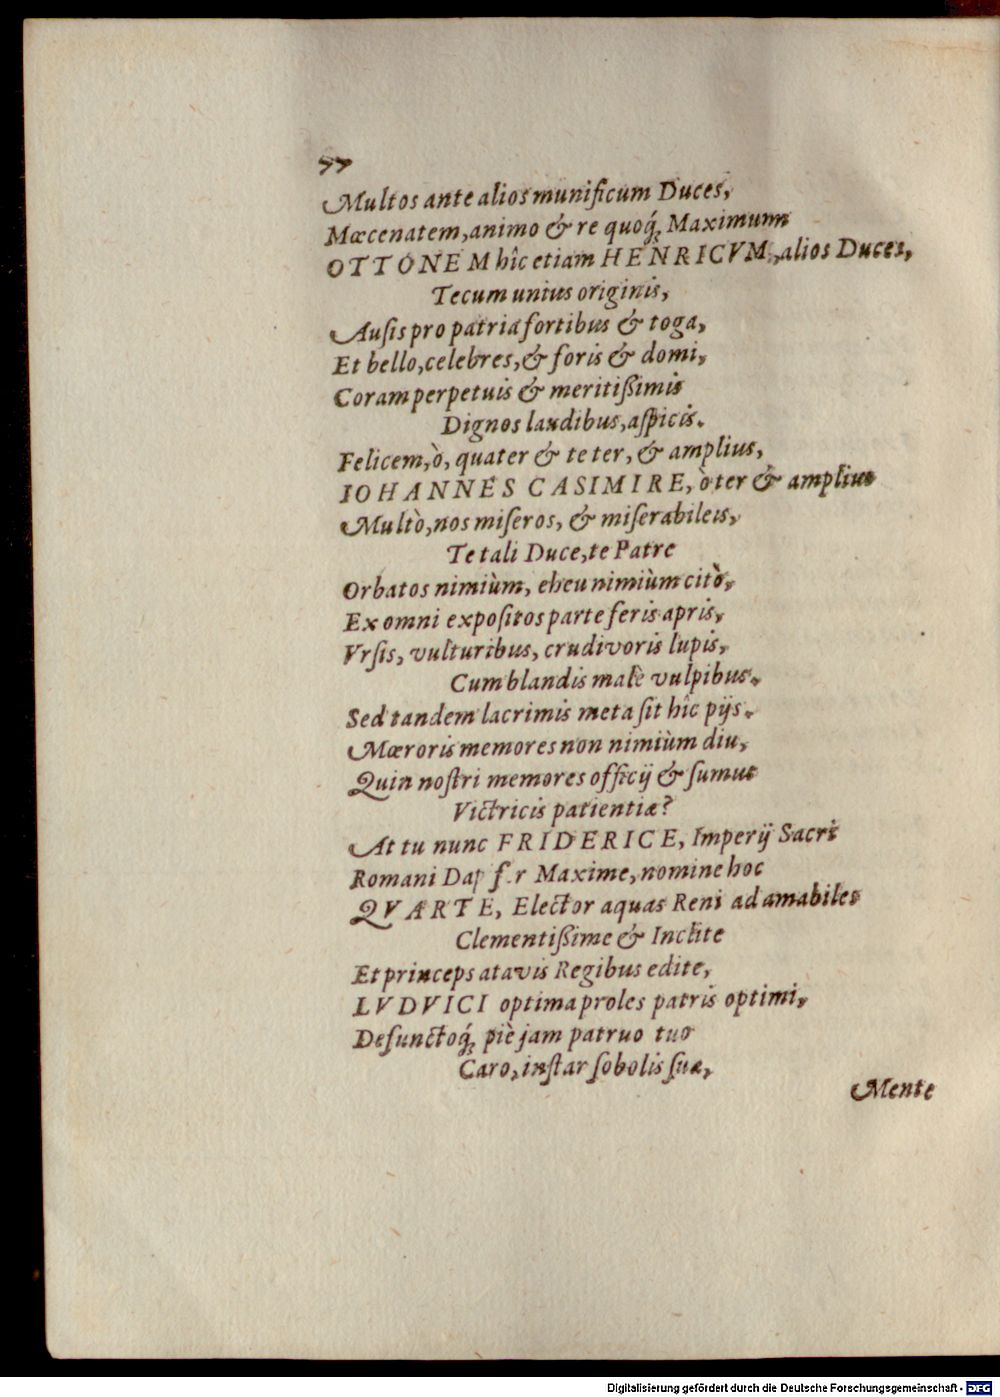 77
Multos ante alios munificum Duces,
Mœcenatem, animo & re quoq́; Maximum
OTTONEM hîc etiam HENRICVM, alios Duces,
Tecum unius originis,
Ausis pro patria fortibus & toga,
Et bello, celebres, & foris & domi,
Coram perpetuis & meritißimis
Dignos laudibus, aspicis.
Felicem, ò, quater & te ter, & amplius,
IOHANNES CASIMIRE, ò ter & amplius
Multò, nos miseros, & miserabileis,
Te tali Duce, te Patre
Orbatos nimiùm, eheu nimiùm citò,
Ex omni expositos parte feris apris,
Vrsis, vulturibus, crudivoris lupis,
Cum blandis malè vulpibus.
Sed tandem lacrimis meta sit hîc pijs.
Mœroris memores non nimiùm diu,
Quin nostri memores officij & sumus
Victricis patientiæ?
At tu nunc FRIDERICE, Imperij Sacri
Romani Maxime, nomine hoc
QVARTE, Elector aquas Reni ad amabiles
Clementißime & Inclite
Et princeps atavis Regibus edite,
LVDVICI optima proles patris optimi,
Defunctoq́; piè jam patruo tuo
Caro, instar sobolis suæ,
Mente
Digitalisierung gefördert durch die Deutsche Forschungsgemeinschaft - DFG